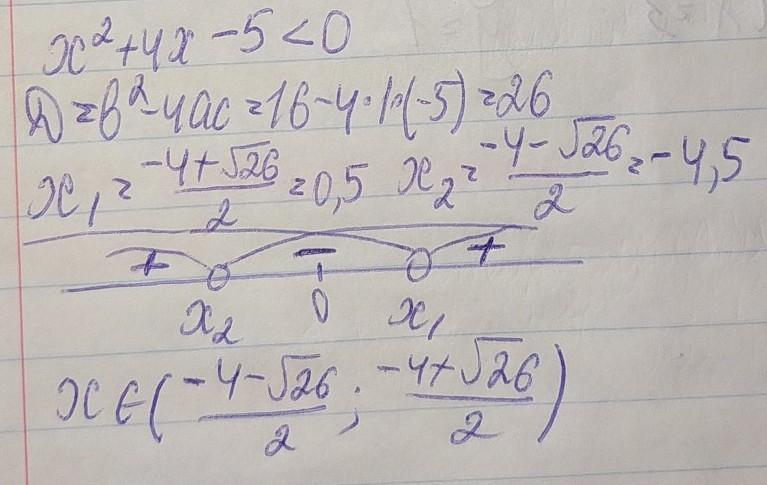 x²+4x-5<0
D=b²-4ac=16-4·1·(-5)=26
x₁=(-4+√26)/2=0,5 x₂=(-4-√26)/2=-4,5
+ - +
x₂ 0 x₁
x∈((-4-√26)/2; (-4+√26)/2)